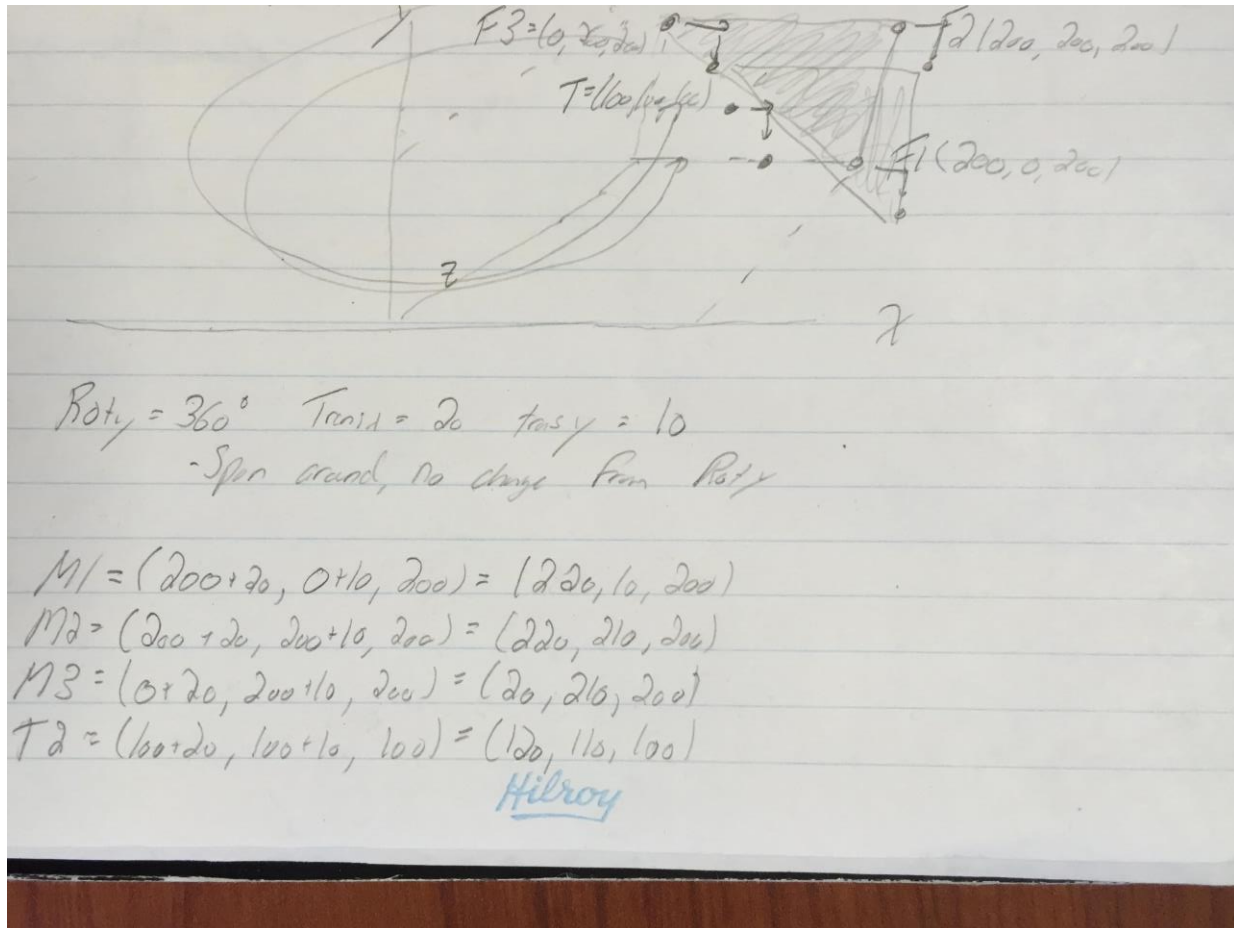 Y
F3=(0, 200, 200)
F2(200, 200, 200)
T=(100,100,100)
F1(200, 0, 200)
Z
X
Roty = 360° Transx = 20 trasy = 10
-Spen around, no change from Roty
M1=(200+20, 0+10, 200)= (220, 10, 200)
M2=(200+20, 200+10, 200)=(220, 210, 200)
M3=(0+20, 200+10, 200)=(20, 210, 200)
T2=(100+20, 100+10, 100)=(120, 110, 100)
Hilroy